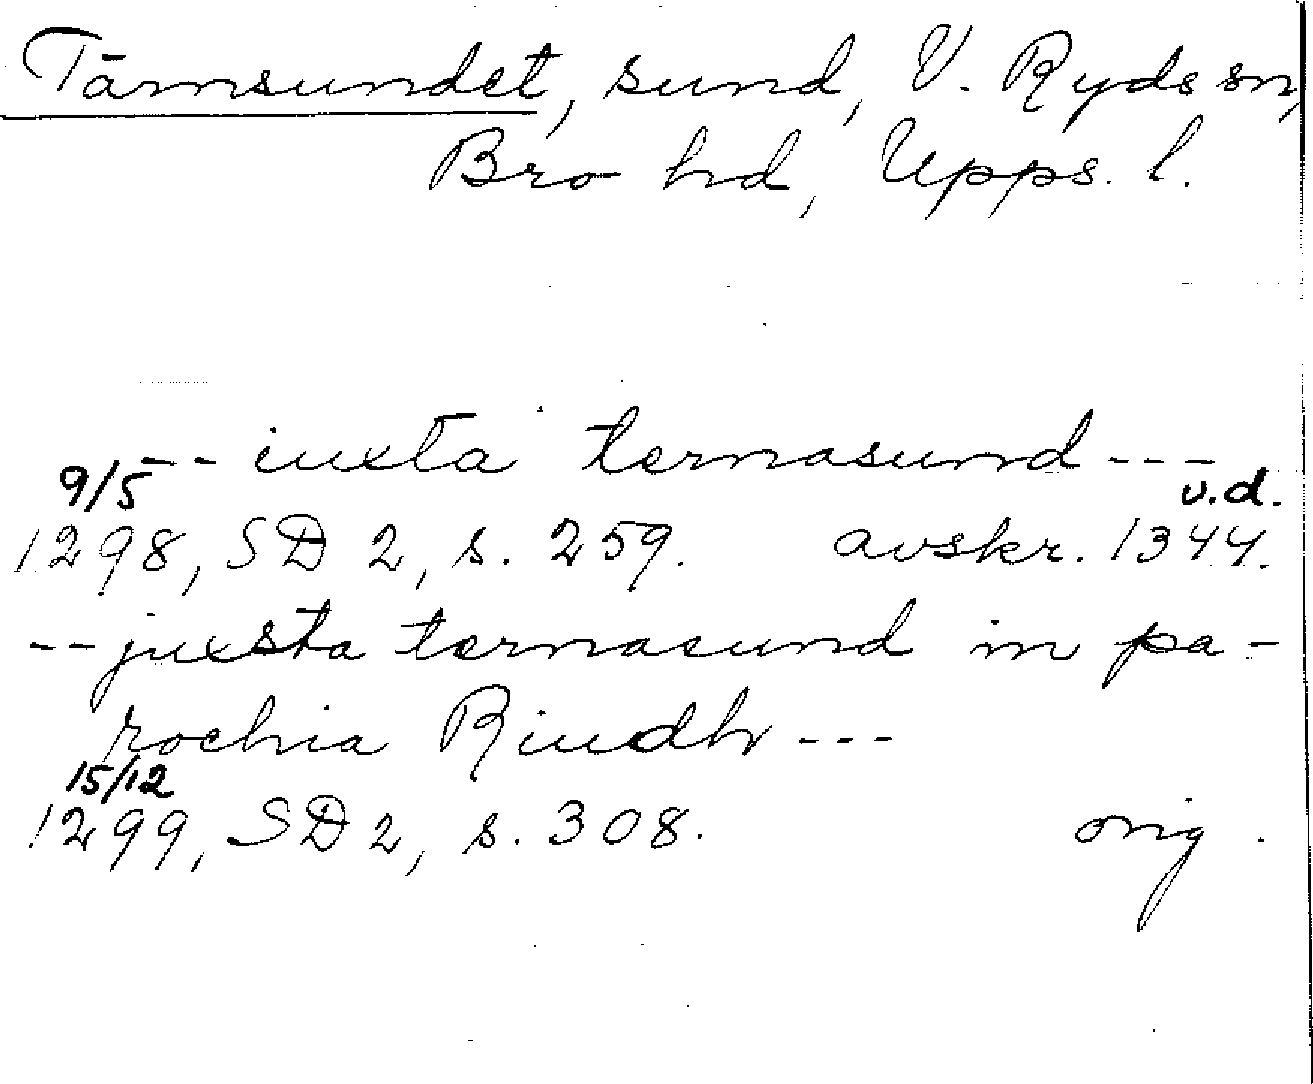 Tärnsundet, sund, V. Ryds sn,
Bro hd, Upps. l.
-- iuxta ternasund ---
9/5 u.d.
1298, SD 2, s. 259. avskr. 1344.
-- juxsta ternasund in pa-
rochia Riudh ---
15/12
1299, SD 2, s. 308. orig.